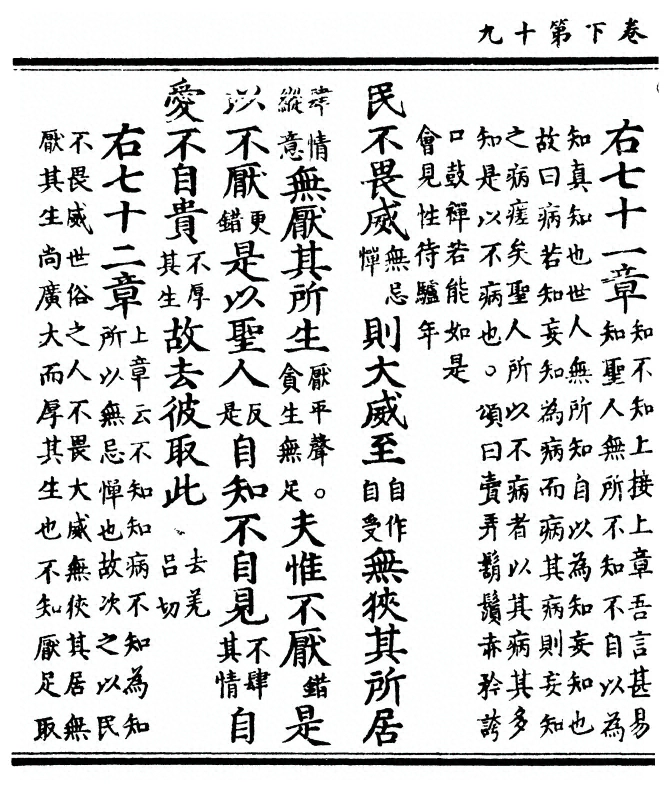 卷下第十九
右七十一章知不知上接上章吾言甚易
知聖人無所不知不自以為
知真知也世人無所知自以為知妄知也
故曰病若知妄知為病而病其病則妄知
之病瘥矣聖人所以不病者以其病其多
知是以不病也。頌曰賣弄鬍鬚赤矜誇
口鼓禪若能如是
會見性待驢年
民不畏威無忌憚則大威至自作自受無狹其所居
肆情縱意無厭其所生厭平聲。貪生無足夫惟不厭錯是
以不厭更錯是以聖人反是自知不自見不肆其情自
愛不自貴不厚其生故去彼取此去羌呂切
右七十二章上章云不知知病不知為知
所以無忌憚也故次之以民
不畏威世俗之人不畏大威無狹其居無
厭其生尚廣大而厚其生也不知厭足取